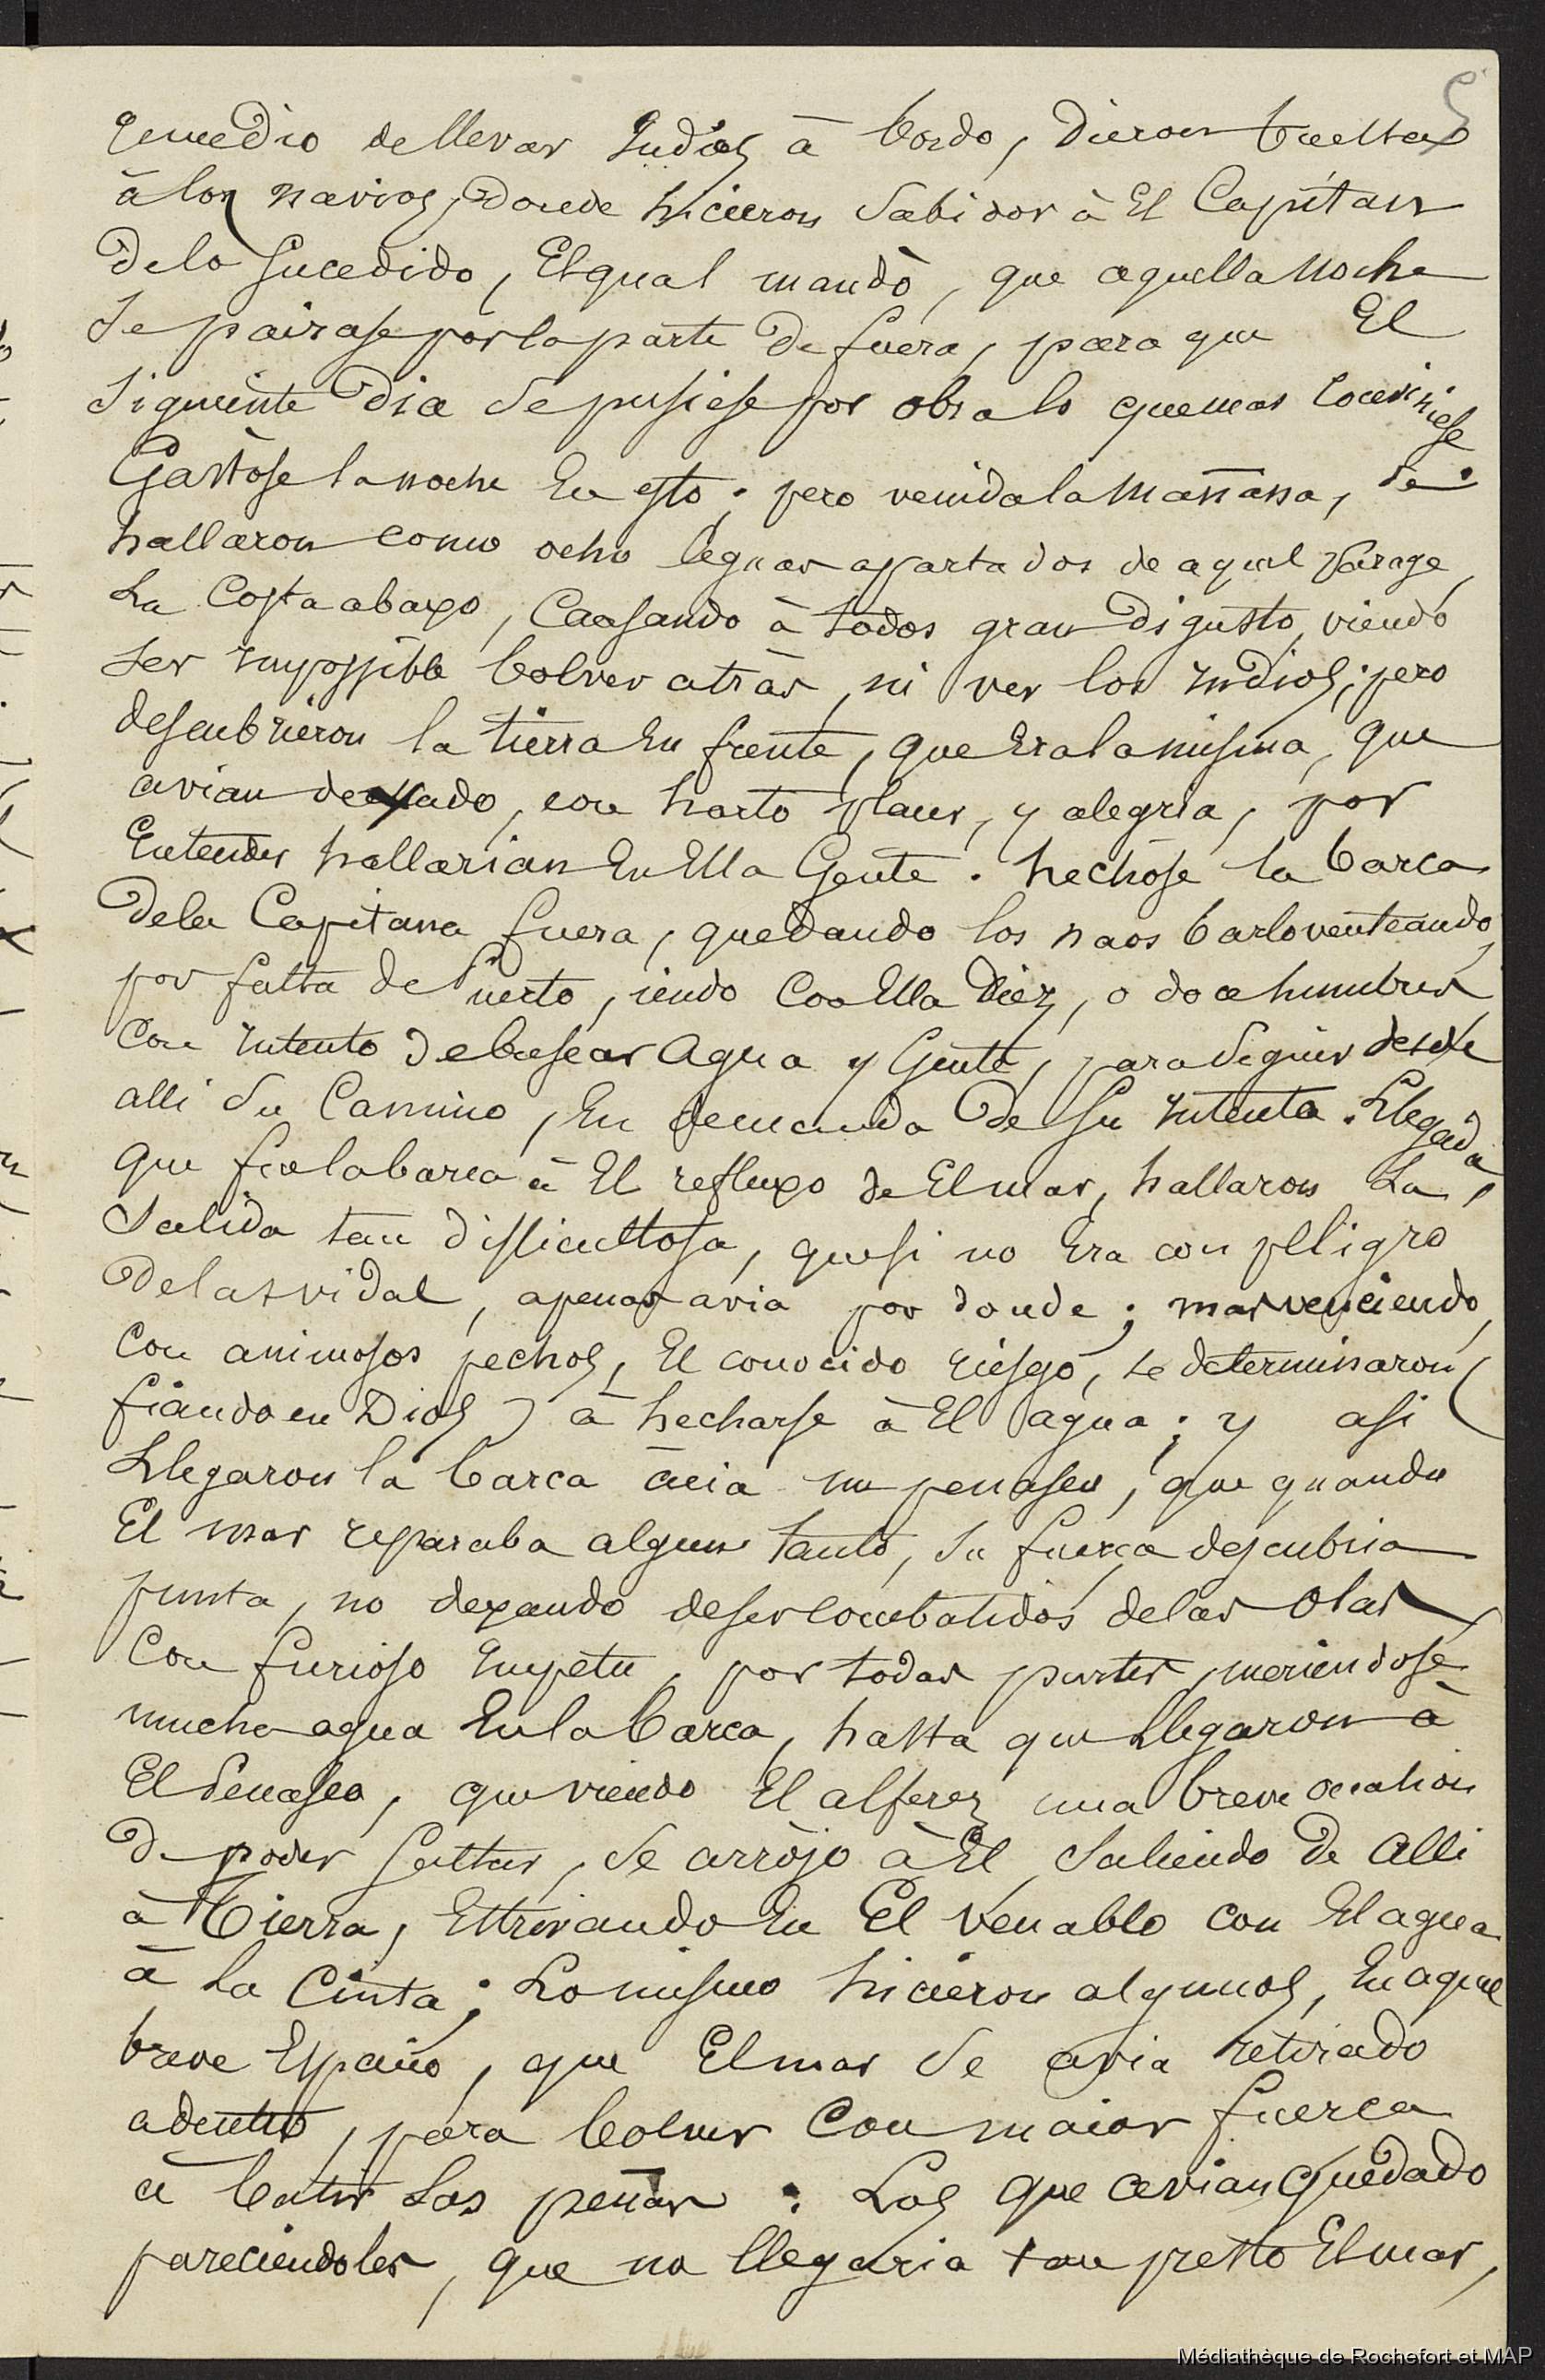 5
remedio dellevar Indios à bordo, Dieron buelta
à los navios, Donde hicieron Sabidor à El Capitan
Delo Sucedido, Elqual mandò, que aquella Noche
Se pairase por la parte De fuera, para que El
Siguiente Dia Se pusiese por obra lo quemas conviniese
Gastòse la noche En esto; pero venida la Mañana, Se
hallaron como ocho leguas apartados de aquel Parage,
La Costa abaxo, Causando à todos gran Disgusto, viendo
Ser Impossible bolver atràs, ni ver los Indios; pero
descubrieron la tierra En frente, que Era la misma, que
avian dexado, con harto placer, y alegria, por
Entender hallarian En Ella Gente. hechòse la barca
Dela Capitana fuera, quedando los naos barloventeando,
por falta de Puerto, iendo Con Ella Diez, o doce hombres,
Con Intento De buscar Agua y Gente, para Seguir desde
alli Su Camino, En demanda De Su Intento. Llegada
que fue la barca à El refluxo de El mar, hallaron La
Salida tan difficultosa, que si no Era con peligro
De las vidas, apenas avia por donde; mas venciendo,
Con animosos pechos, El conocido riesgo, se determinaron (
fiando en Dios) à hecharse à El agua; y asi
Llegaron la barca àcia un peñasco, que quando
El mar reparaba algun tanto, Su fuerça descubria
punta, no dexando de ser combatidos de las Olas
Con furioso Impetu, por todas partes, metiendose
mucha agua En la barca, hasta que Llegaron à
El Penasco, que viendo El alferez una breve ocasion
De poder Saltar, Se arròjo à El, Saliendo De Alli
à Tierra, Estrivando En El Venablo con El agua
à La Cinta; Lo mismo hicieron algunos, En aquel
breve Espacio, que El mar Se avia retirado
adentro, para bolver Con maior fuerça
à batir Las peñas: Los que avian quedado
pareciendoles, que no llegaria tan presto El mar,
Médiathèque de Rochefort et MAP